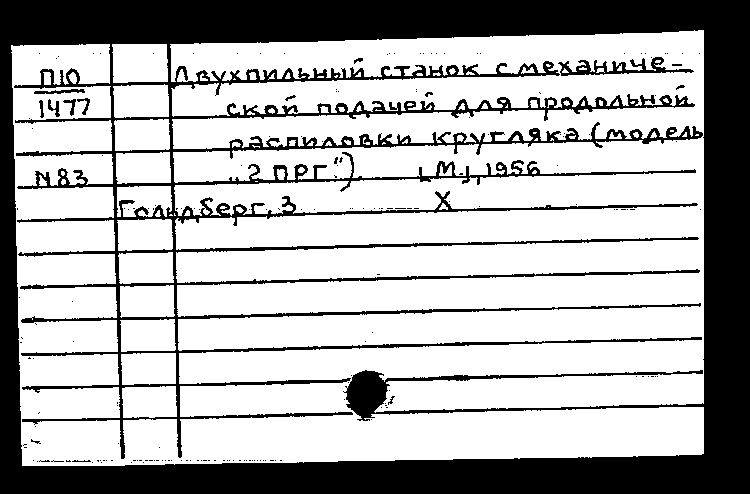 П10 Двухпильный станок с механиче-
1477 ской подачей для продольной
распиловки кругляка (модель
N83 „2 ПРГ“) [М.], 1956
Гольдберг, З X